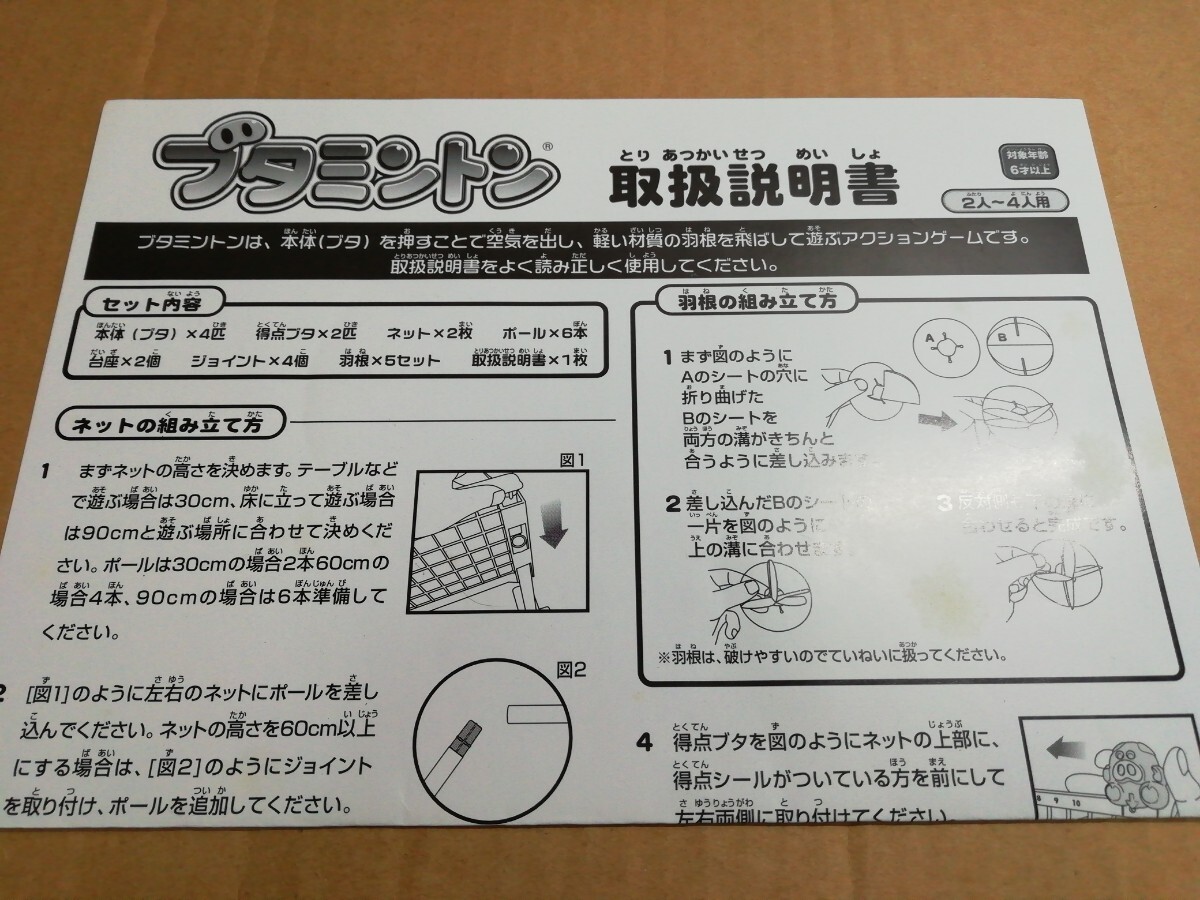 ブタミントン®
取扱説明書
とり あつかい せつ めい しょ
対象年齢
6才以上
2人〜4人用
ブタミントンは、本体(ブタ)を押すことで空気を出し、軽い材質の羽根を飛ばして遊ぶアクションゲームです。
取扱説明書をよく読み正しく使用してください。
セット内容
本体(ブタ)×4匹 得点ブタ×2匹 ネット×2枚 ポール×6本
台座×2個 ジョイント×4個 羽根×5セット 取扱説明書×1枚
ネットの組み立て方
1 まずネットの高さを決めます。テーブルなど
で遊ぶ場合は30cm、床に立って遊ぶ場合
は90cmと遊ぶ場所に合わせて決めくだ
さい。ポールは30cmの場合2本60cmの
場合4本、90cmの場合は6本準備して
ください。
図1
2 [図1]のように左右のネットにポールを差し
込んでください。ネットの高さを60cm以上
にする場合は、[図2]のようにジョイント
を取り付け、ポールを追加してください。
図2
羽根の組み立て方
1 まず図のように
Aのシートの穴に
折り曲げた
Bのシートを
両方の溝がきちんと
合うように差し込みます
A
B
2 差し込んだBのシート
一片を図のように
上の溝に合わせます
3 反対側
合わせると完成です。
※羽根は、破けやすいのでていねいに扱ってください。
4 得点ブタを図のようにネットの上部に、
得点シールがついている方を前にして
左右両側に取り付けてください。
8 9 10